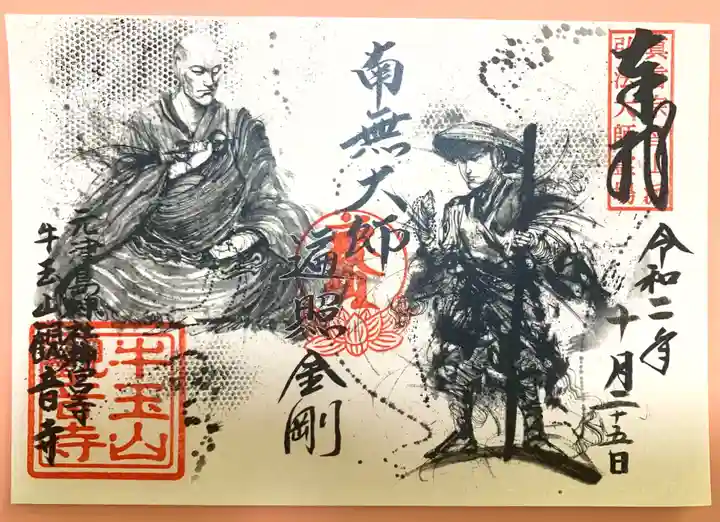 奉拝
弘法大師霊場
令和二年
十月二十五日
南無大師
遍照金剛
元津島神社神宮寺
牛玉山観音寺
牛玉山
観音寺